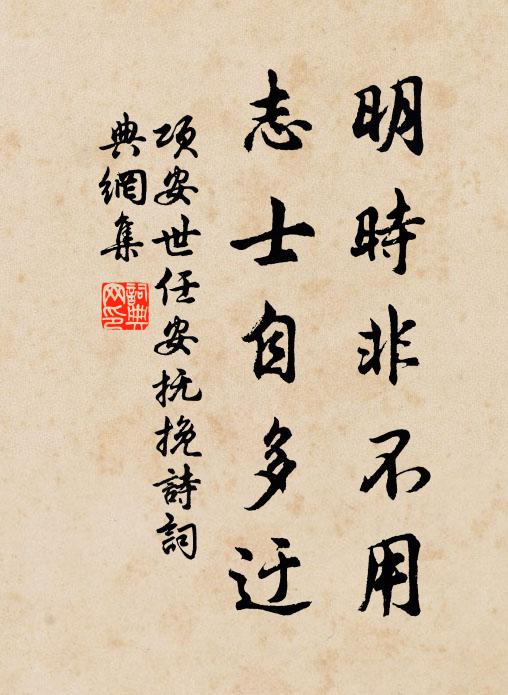 明時非不用
志士自多迂
项安世任安抚挽詩詞
典網集
詞典網印